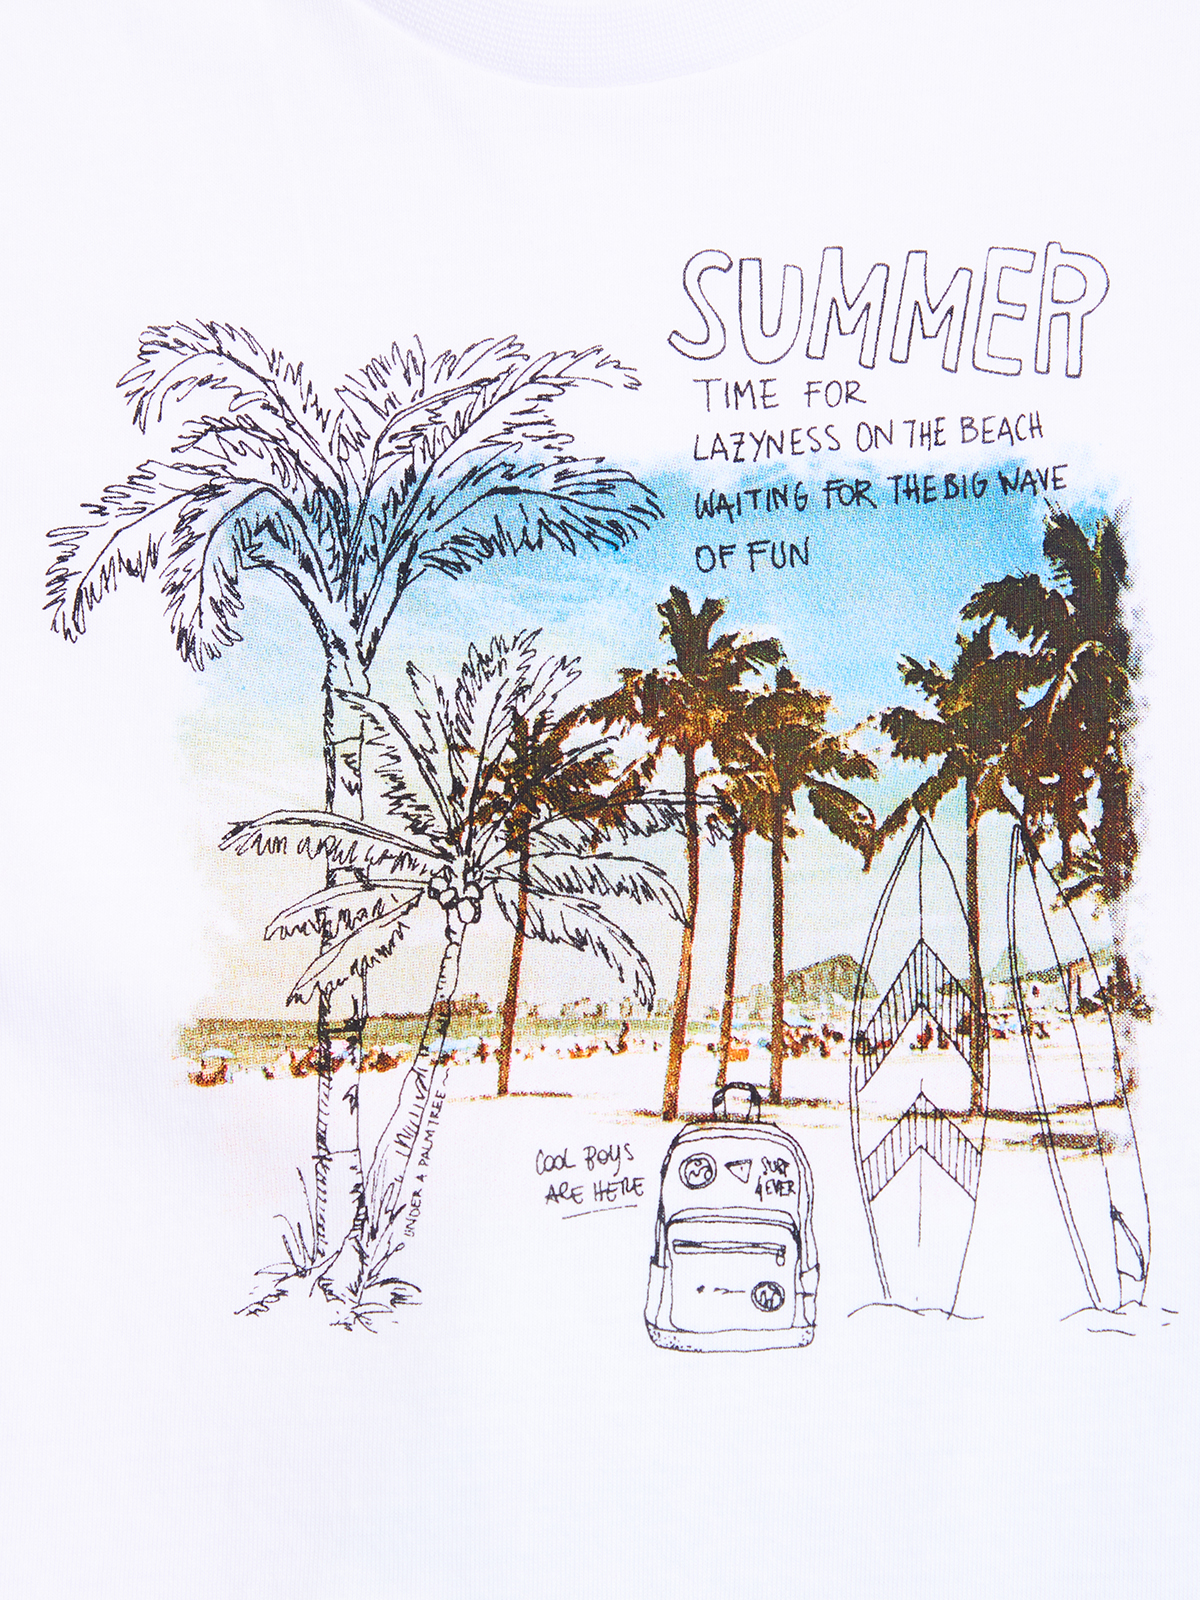 SUMMER
TIME FOR
LAZYNESS ON THE BEACH
WAITING FOR THE BIG WAVE
OF FUN
COOL BOYS
ARE HERE
SURF
4EVER
UNDER A PALMTREE